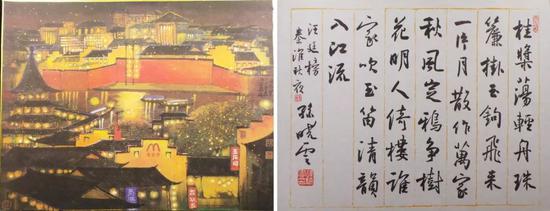 桂檝蕩輕舟珠
簾掛玉鉤飛来
一片月散作萬家
秋風定鴉爭樹
花明人倚樓誰
家吹玉笛清韻
入江流
汪廷榜
秦淮秋夜
孫曉雲